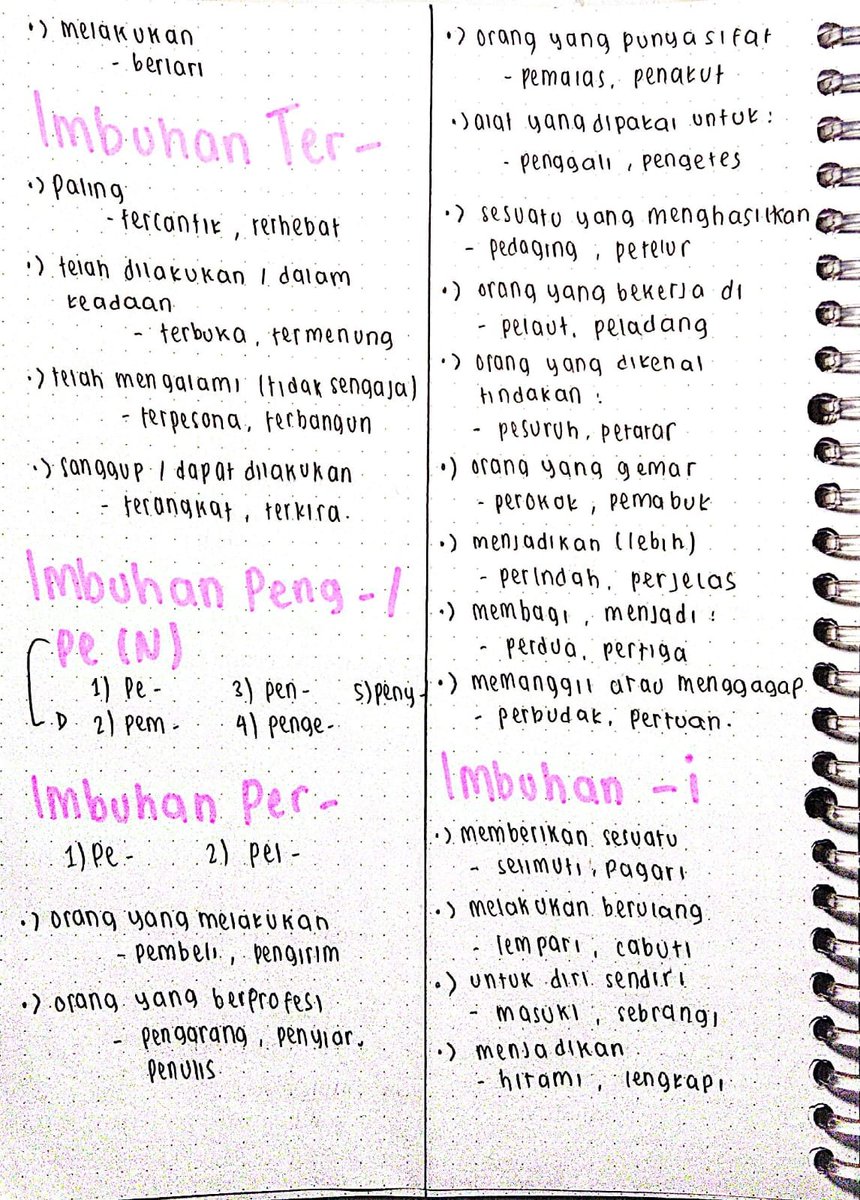 •) melakukan
- berlari
Imbuhan Ter-
•) Paling
- tercantik, terhebat
•) telah dilakukan / dalam
keadaan
- terbuka, termenung
•) telah mengalami (tidak sengaja)
- terpesona, terbangun
•) sanggup / dapat dilakukan
- terangkat, terkira.
Imbuhan Peng- /
Pe (N)
1) Pe- 3) pen- 5) peny-
2) Pem- 4) Penge-
Imbuhan Per-
1) Pe- 2) Pel-
•) orang yang melakukan
- pembeli, pengirim
•) orang yang berprofesi
- pengarang, penyiar,
penulis
•) orang yang punya sifat
- pemalas, penakut
•) alat yang dipakai untuk:
- penggali, pengetes
•) sesuatu yang menghasilkan
- pedaging, petelur
•) orang yang bekerja di
- pelaut, peladang
•) orang yang dikenai
tindakan:
- pesuruh, petatar
•) orang yang gemar
- perokok, pemabuk
•) menjadikan (lebih)
- perindah, perjelas
•) membagi, menjadi:
- perdua, pertiga
•) memanggil atau menggagap
- perbudak, pertuan.
Imbuhan -i
•) memberikan sesuatu
- selimuti, pagari
•) melakukan berulang
- lempari, cabuti
•) untuk diri sendiri
- masuki, sebrangi
•) menjadikan
- hitami, lengkapi